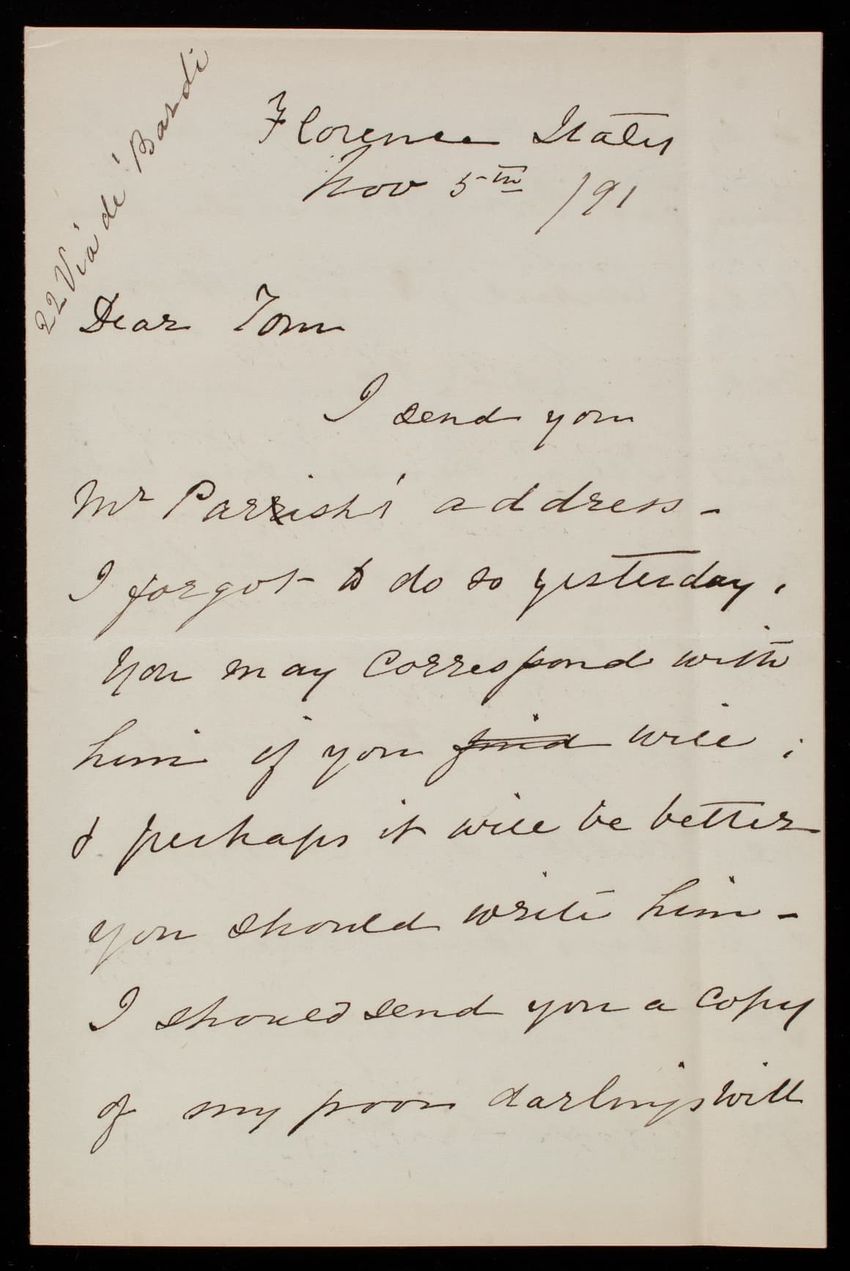 22 Via de' Bardi
Florence Italy
Nov 5th /91
Dear Tom
I send you
Mr Parrish's address -
I forgot to do so yesterday.
You may correspond with
him if you find will ;
& perhaps it will be better
you should write him -
I should send you a copy
of my poor darlings will